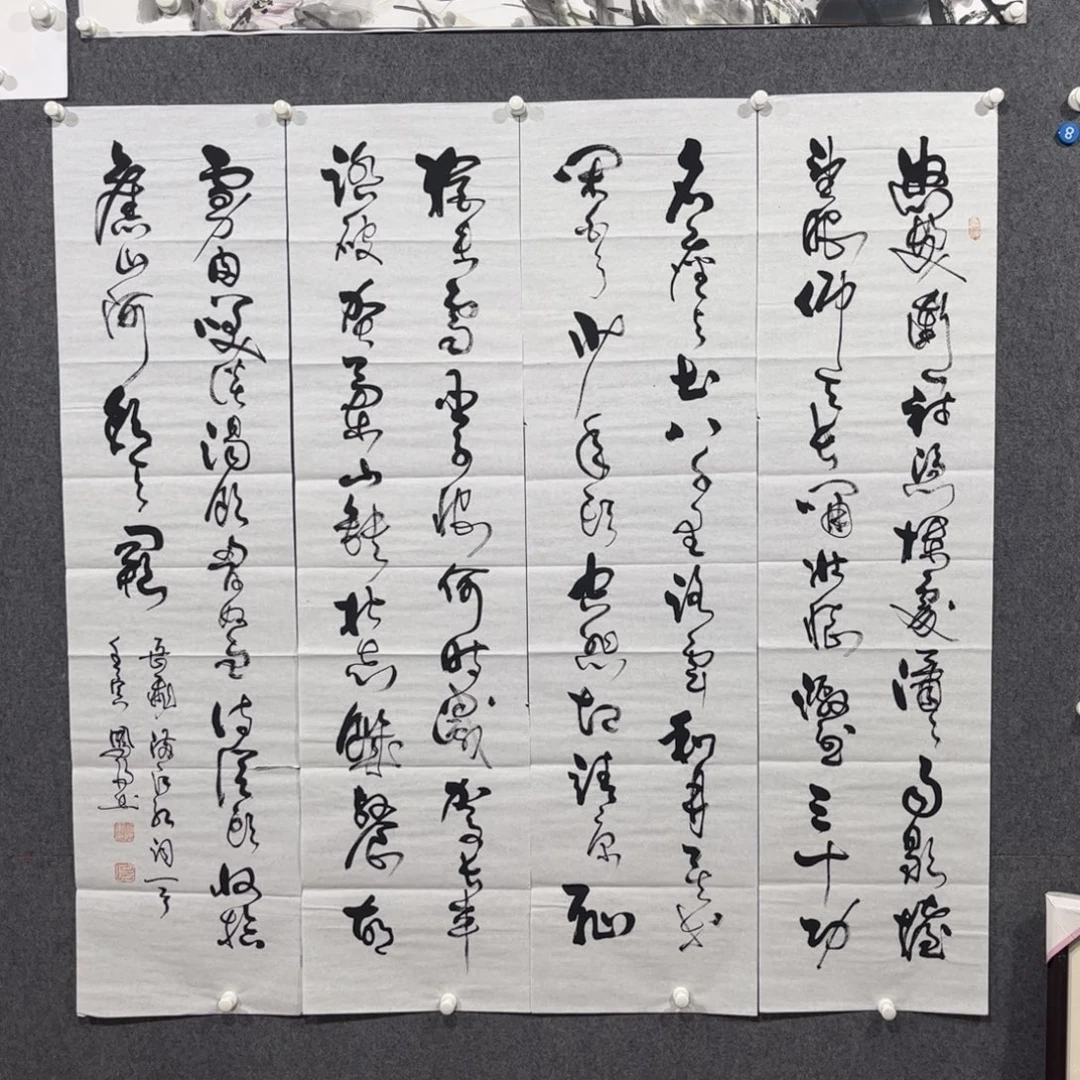 怒髮衝冠憑欄處瀟瀟雨歇擡
望眼仰天長嘯壯懷激烈三十功
名塵與土八千里路雲和月莫等
閑白了少年頭空悲切靖康恥
猶未雪臣子恨何時滅駕長車
踏破賀蘭山缺壯志饑餐胡
虜肉笑談渴飲匈奴血待從頭收拾
舊山河朝天闕
岳飛滿江紅詞一首
壬寅
8